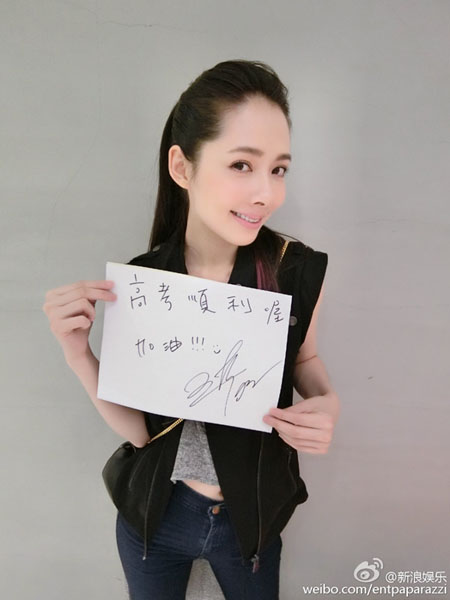 高考順利喔
加油!!!
@新浪娱乐
weibo.com/entpaparazzi